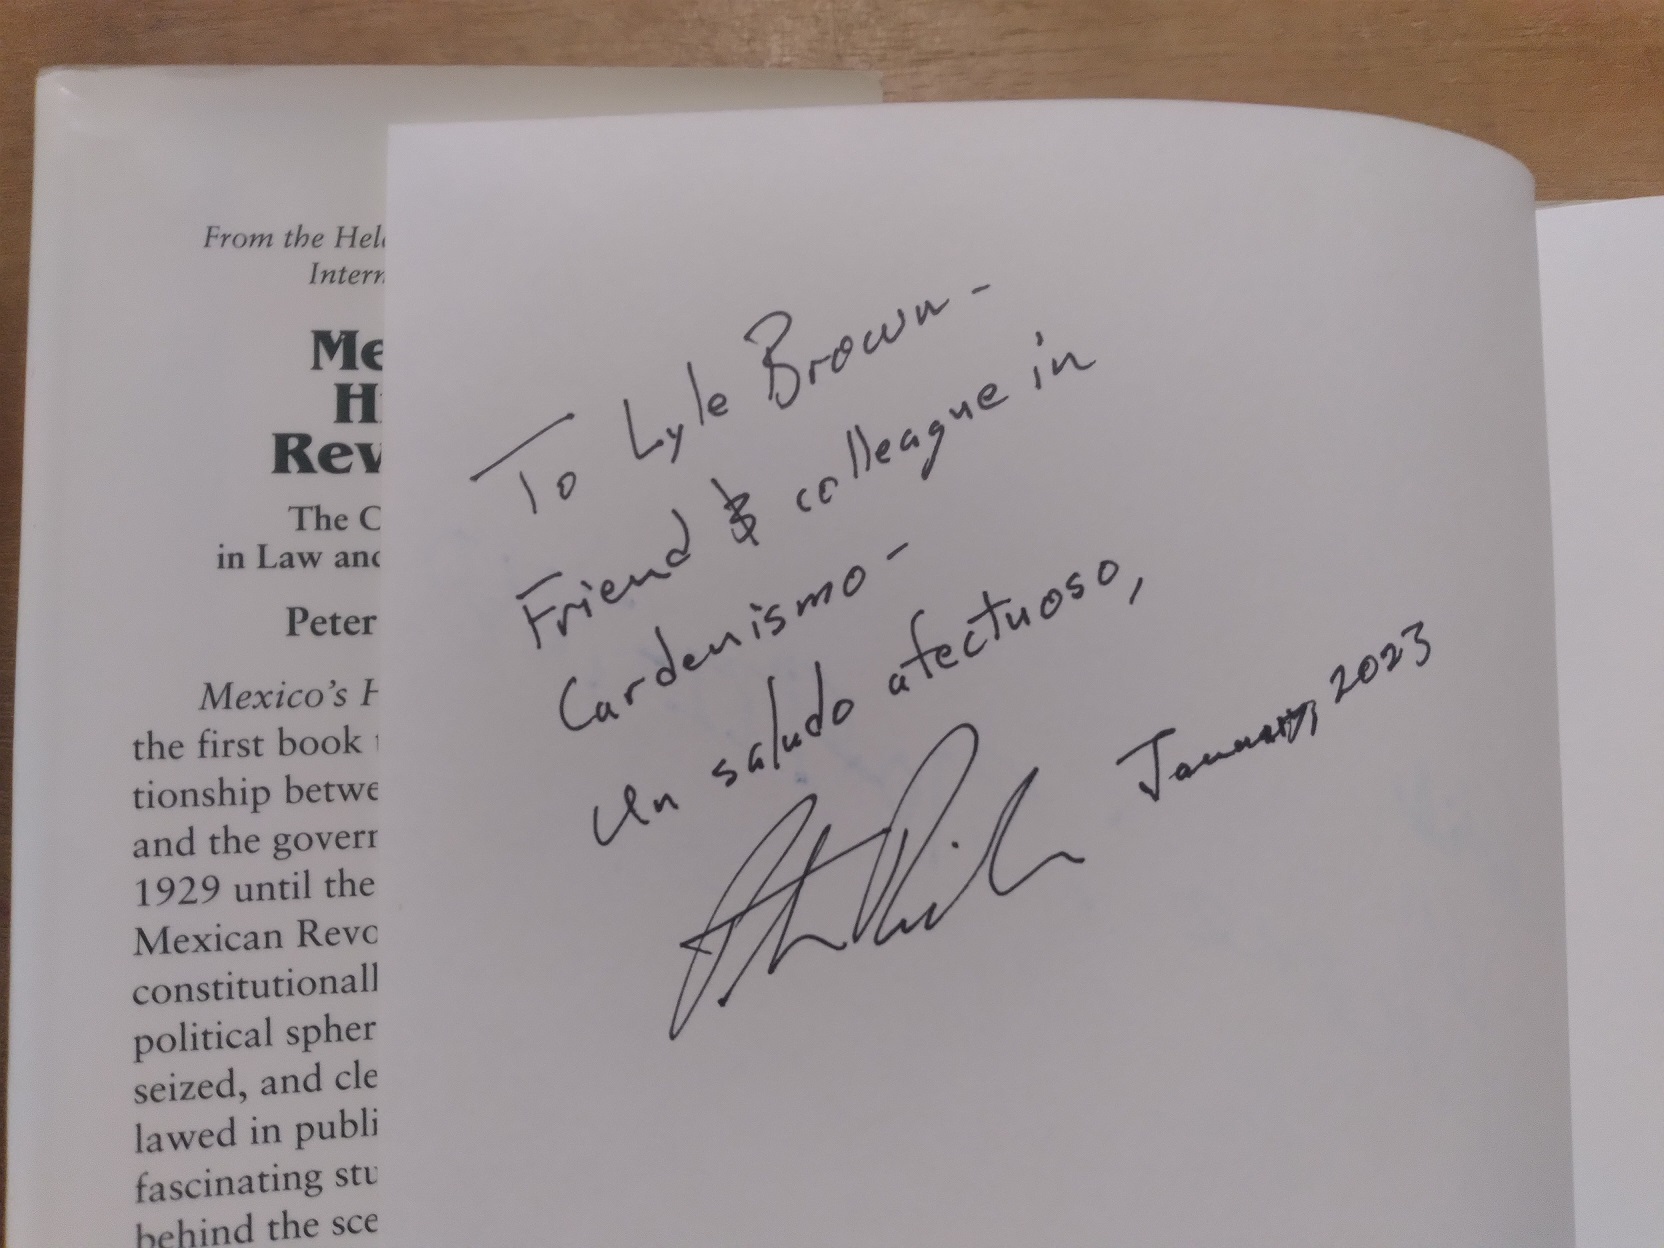 From the Hel
Intern
Me
H
Rev
The C
in Law and
Peter
Mexico's H
the first book
tionship betwe
and the govern
1929 until the
Mexican Revo
constitutionall
political spher
seized, and cle
lawed in publi
fascinating stu
behind the sce
To Lyle Brown -
Friend & colleague in
Cardenismo -
Un saludo afectuoso,
January, 2023